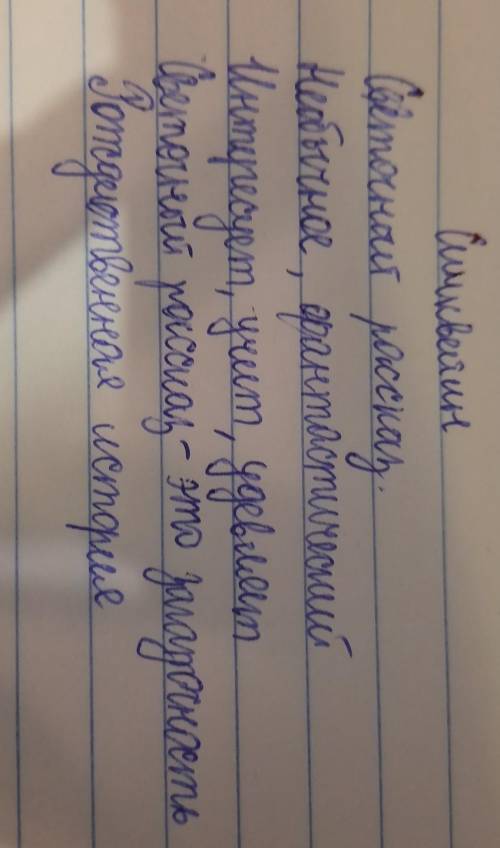 Синквейин
Святочный рассказ.
Необычное, фантастический
Интересует, учит, удевляет
Святочный рассказ - это загадочность
Рождественная история